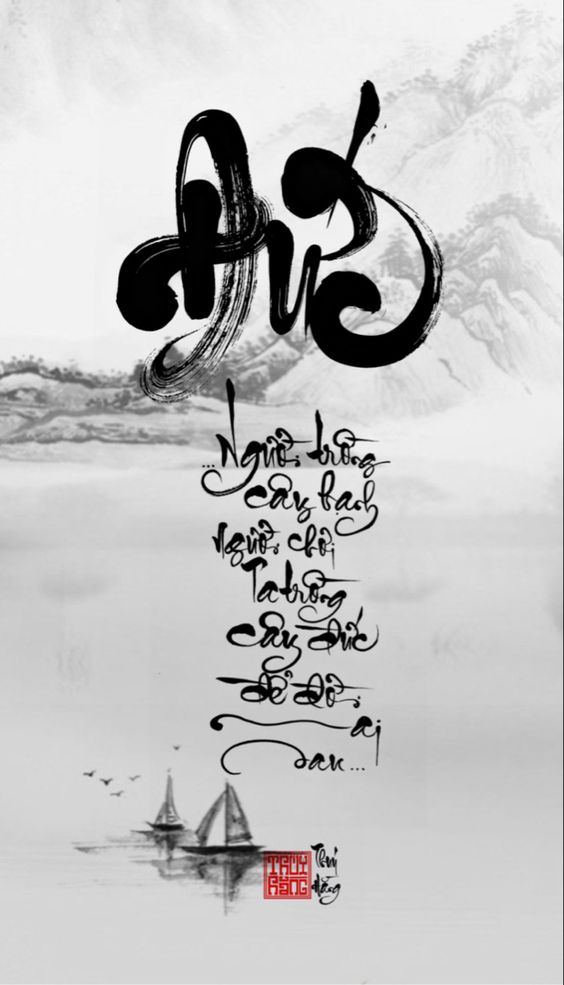 Đức
...Người trồng
cây hạnh
người chơi
Ta trồng
cây Đức
để đời
mai
sau...
THUÝ
HẰNG
Thuý
Hằng